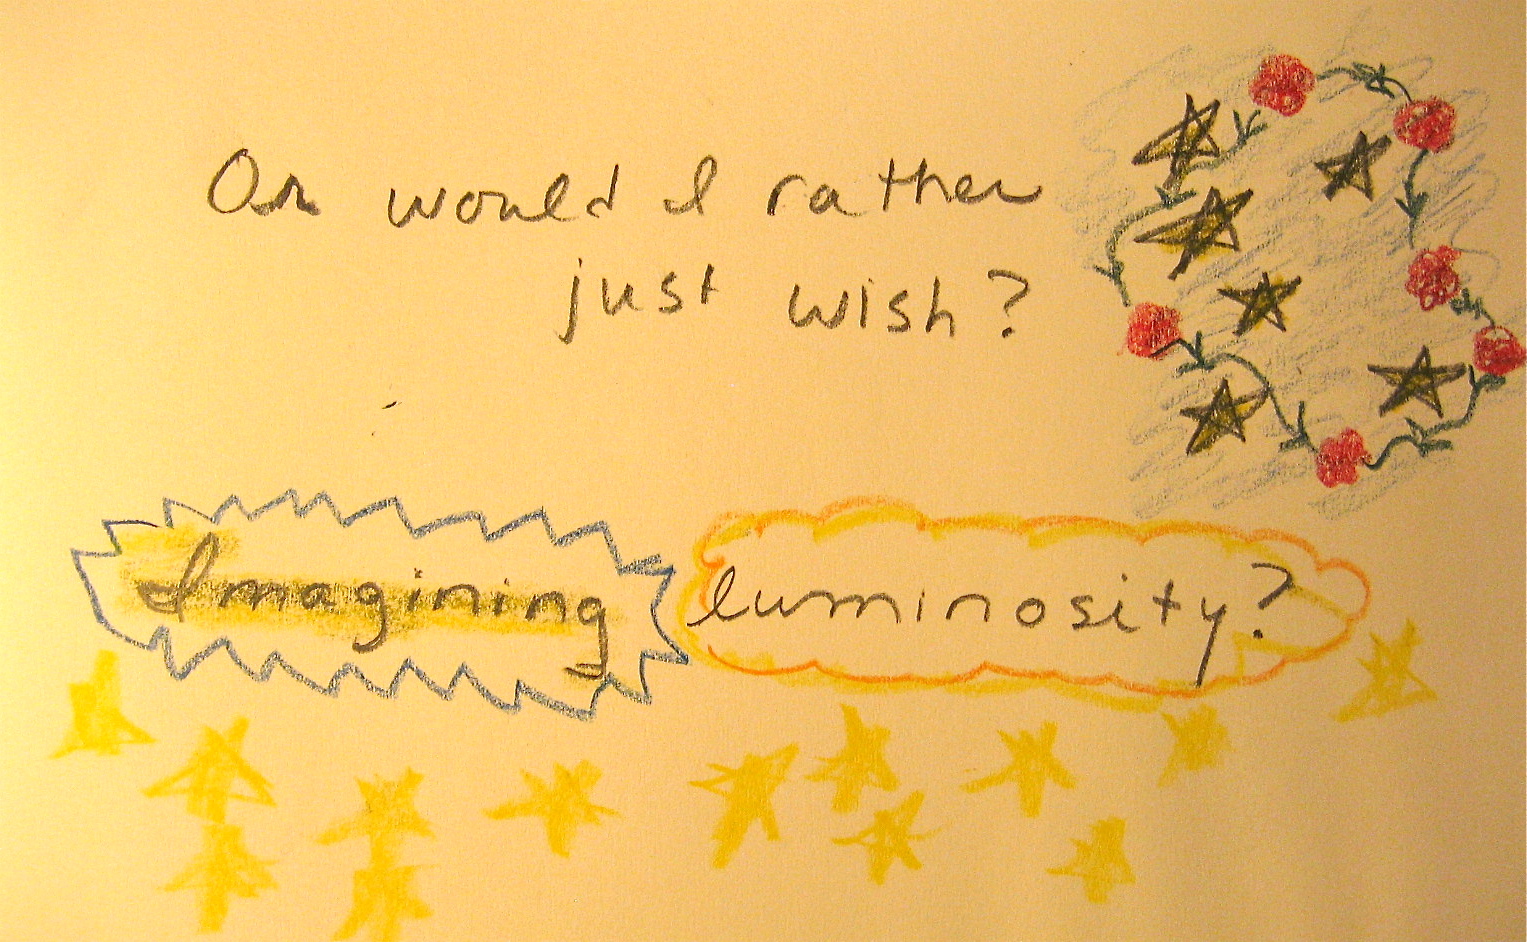 Or would I rather
just wish?
Imagining luminosity?